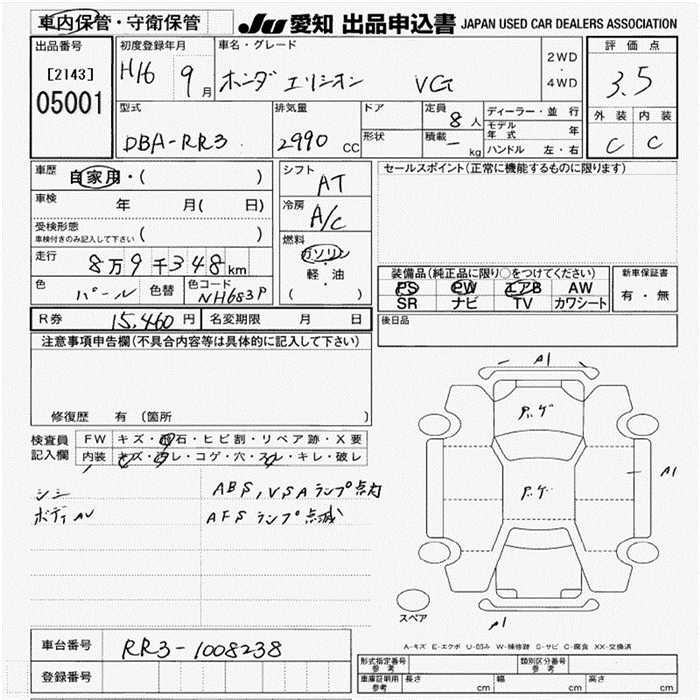 車内保管・守衛保管
JU 愛知 出品申込書 JAPAN USED CAR DEALERS ASSOCIATION
出品番号
[2143]
05001
初度登録年月
H16 9月
車名・グレード
ホンダ エリシオン VG
2WD
・
4WD
評価点
3.5
外装 内装
C C
型式
DBA-RR3
排気量
2990 CC
ドア
形状
定員 8人
積載 - kg
ディーラー・並行
モデル年式 年
ハンドル 左・右
車歴 自家用・( )
車検 年 月( 日)
受検形態
車検付きのみ記入して下さい ( )
走行
8万9千348km
色 パール 色替 色コード NH683P
シフト
AT
冷房
A/C
燃料
ガソリン
軽・油
( )
セールスポイント(正常に機能するものに限ります)
装備品(純正品に限り○をつけてください)
PS PW エアB AW
SR ナビ TV カワシート
新車保証書
有・無
R券 15,460円 名変期限 月 日
後日品
注意事項申告欄(不具合内容等は具体的に記入して下さい)
修復歴 有 (箇所 )
検査員記入欄
FW キズ・飛石・ヒビ割・リペア跡・X要
内装 キズ・汚レ・コゲ・穴・スレ・キレ・破レ
シミ
ABS,VSAランプ点灯
AFSランプ点滅
A1
P.ゲ
P.ゲ
A1
A1
スペア
A-キズ E-エクボ U-凹み W-補修跡 S-サビ C-腐食 XX-交換済
車台番号 RR3-1008238
登録番号
形式指定番号 参考
類別区分番号 参考
車庫証明用 参考 長さ cm 幅 cm 高さ cm